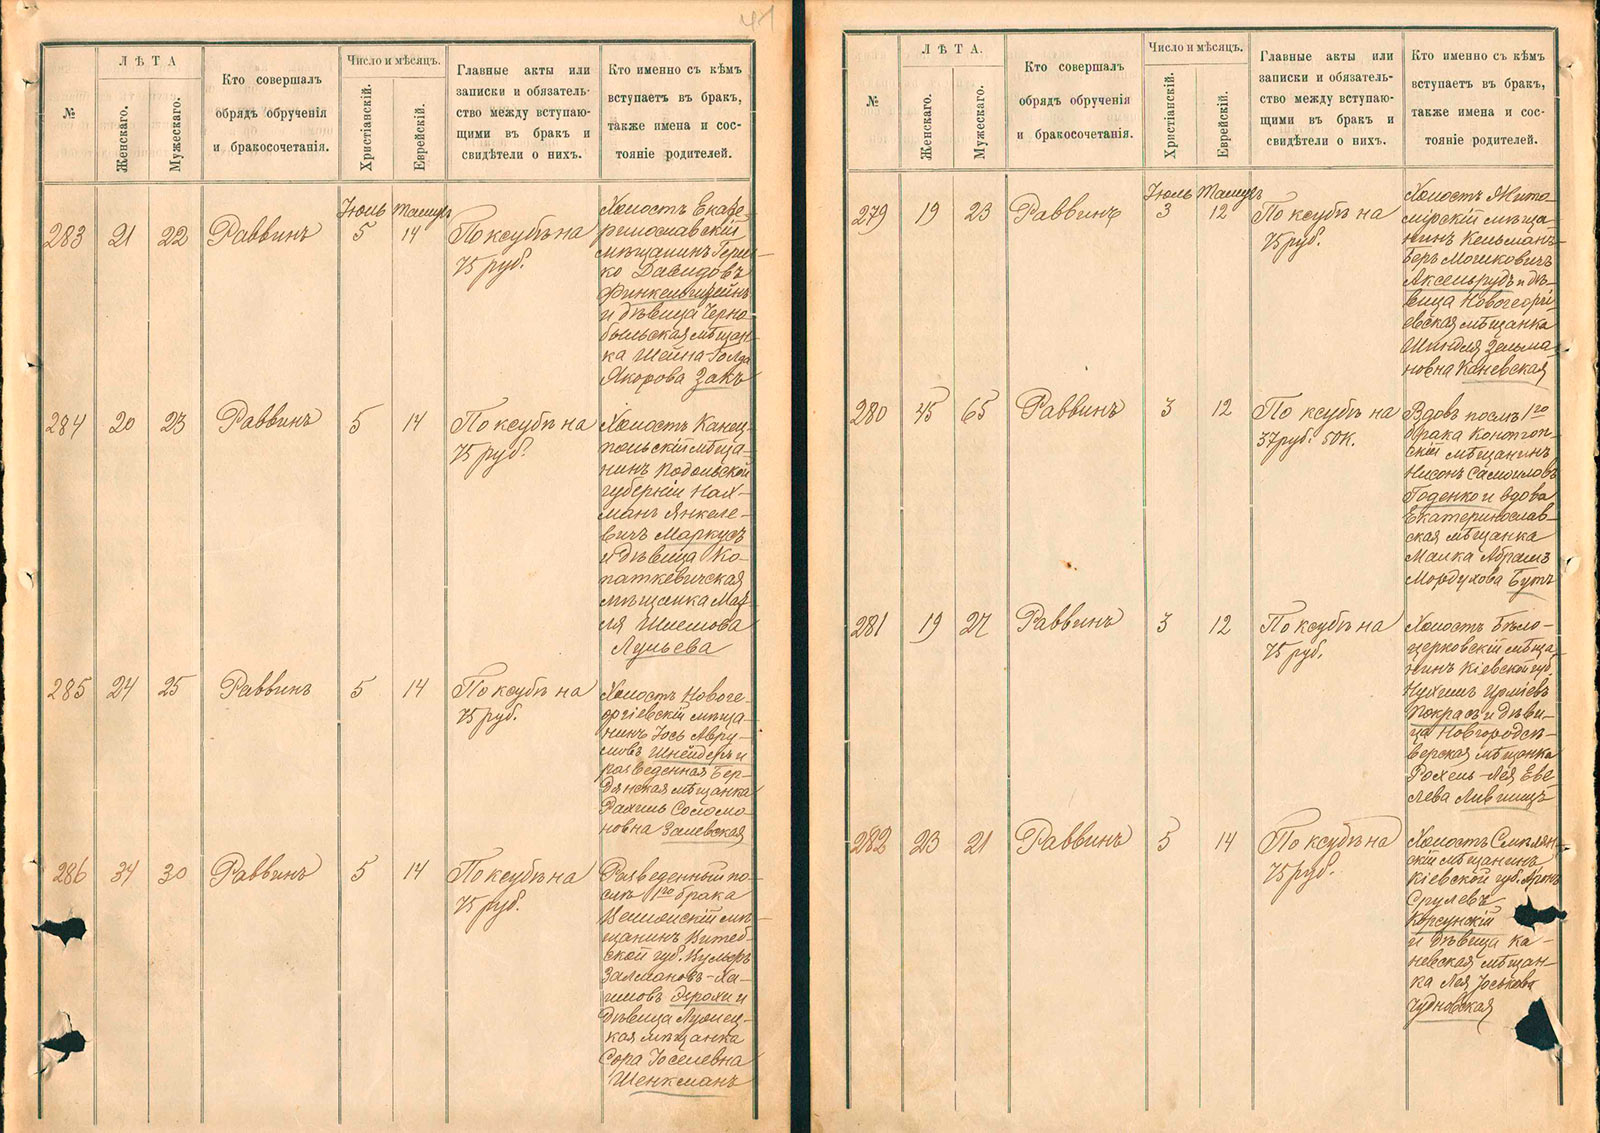 41
№
ЛѢТА
Женскаго.
Мужескаго.
Кто совершалъ
обрядъ обрученія
и бракосочетанія.
Число и мѣсяцъ.
Христіанскій.
Еврейскій.
Главные акты или
записки и обязатель-
ство между вступаю-
щими въ бракъ и
свидѣтели о нихъ.
Кто именно съ кѣмъ
вступаетъ въ бракъ,
также имена и сос-
тояніе родителей.
Іюль Тамузъ
283 21 22 Раввинъ 5 14
По ксубѣ на
75 руб.
Холостъ Екате-
ринославскій
мѣщанинъ Герш-
ко Давидовъ
Финкельштейнъ
и дѣвица Черно
быльская мѣщан-
ка Шейна-Голда
Закъ
284 20 23 Раввинъ 5 14
По ксубѣ на
75 руб.
Холостъ Конец
польскій мѣща-
нинъ Подольской
губерніи Нах-
манъ Янкеле-
вичъ Маркусъ
и дѣвица Ко-
паткевичская
мѣщанка
ля Шлемова
285 24 25 Раввинъ 5 14
По ксубѣ на
75 руб.
Холостъ Новоге-
оргіевскій мѣща-
нинъ Іось Авру-
мовъ Шнейдеръ и
разведенная Бер-
дянская мѣщанка
Рахиль Соломо
новна Залевская
286 34 30 Раввинъ 5 14
По ксубѣ на
75 руб.
Разведенный по-
слѣ 1го брака
мѣ-
щанинъ Витеб-
ской губ.
Залмановъ-Ха-
имовъ и
дѣвица
кая мѣщанка
Сора Іоселевна
Шенкманъ
№
ЛѢТА.
Женскаго.
Мужескаго.
Кто совершалъ
обрядъ обрученія
и бракосочетанія.
Число и мѣсяцъ.
Христіанскій.
Еврейскій.
Главные акты или
записки и обязатель-
ство между вступаю-
щими въ бракъ и
свидѣтели о нихъ.
Кто именно съ кѣмъ
вступаетъ въ бракъ,
также имена и сос-
тояніе родителей.
Іюль Тамузъ
279 19 23 Раввинъ 3 12
По ксубѣ на
75 руб.
Холостъ Жито-
мірскій мѣща-
нинъ Кельманъ
Беръ Мошковичъ
Аксельрудъ и дѣ-
вица Новогеоргі
евская мѣщанка
Шиндля Зельма-
новна Каневская
280 45 65 Раввинъ 3 12
По ксубѣ на
37 руб. 50 к.
Вдовъ послѣ 1го
брака Конотоп-
скій мѣщанинъ
Нисонъ Самойловъ
Годенко и вдова
Екатеринослав-
ская мѣщанка
Малка Абрамъ
Мордухова Бутъ
281 19 27 Раввинъ 3 12
По ксубѣ на
75 руб.
Холостъ Бѣло-
церковскій мѣща
нинъ Кіевской губ.
Нухимъ
Покрасъ и дѣви-
ца Новгородсѣ-
верская мѣщанка
Рохель-Лея Еве
лева Лившицъ
282 23 21 Раввинъ 5 14
По ксубѣ на
75 руб.
Холостъ Смѣлян-
скій мѣщанинъ
Кіевской губ. Аронъ
Срулевъ
Корсунскій
и дѣвица Ка-
невская мѣщан-
ка Лея Іоськова
Чудновская